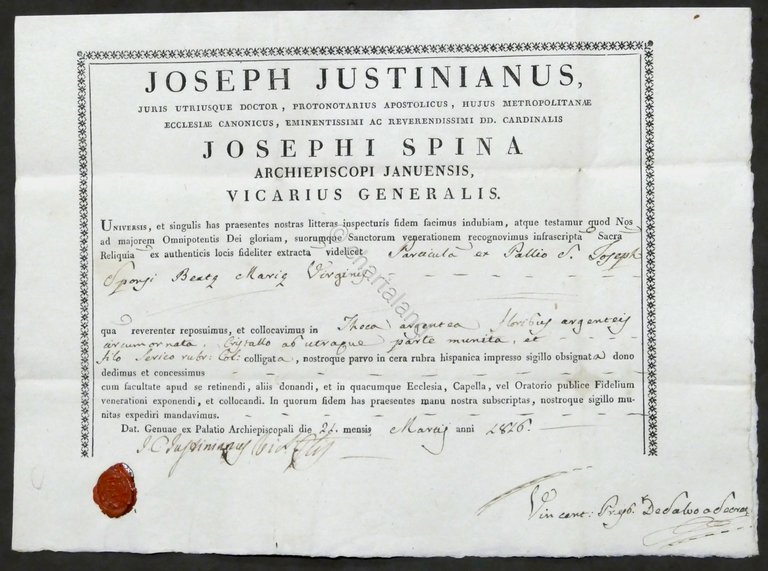 JOSEPH JUSTINIANUS,
JURIS UTRIUSQUE DOCTOR, PROTONOTARIUS APOSTOLICUS, HUJUS METROPOLITANÆ
ECCLESIÆ CANONICUS, EMINENTISSIMI AC REVERENDISSIMI DD. CARDINALIS
JOSEPHI SPINA
ARCHIEPISCOPI JANUENSIS,
VICARIUS GENERALIS.
UNIVERSIS, et singulis has praesentes nostras litteras inspecturis fidem facimus indubiam, atque testamur quod Nos
ad majorem Omnipotentis Dei gloriam, suorumque Sanctorum venerationem recognovimus infrascripta Sacra
Reliquia ex authenticis locis fideliter extracta videlicet Particula ex Pallio S. Joseph
Sponsi Beatæ Mariæ Virginis
qua reverenter reposuimus, et collocavimus in Thoca argentea floribus argenteis
circumornata, Cristallo ab utraque parte munita, et
filo Serico rubri Col: colligata, nostroque parvo in cera rubra hispanica impresso sigillo obsignata dono
dedimus et concessimus
cum facultate apud se retinendi, aliis donandi, et in quacumque Ecclesia, Capella, vel Oratorio publice Fidelium
venerationi exponendi, et collocandi. In quorum fidem has praesentes manu nostra subscriptas, nostroque sigillo mu-
nitas expediri mandavimus.
Dat. Genuae ex Palatio Archiepiscopali die 21. mensis Martij anni 1816.
J. Justinianus Vic
Vincent: Presb. Desalvo a Secret
© chartaland